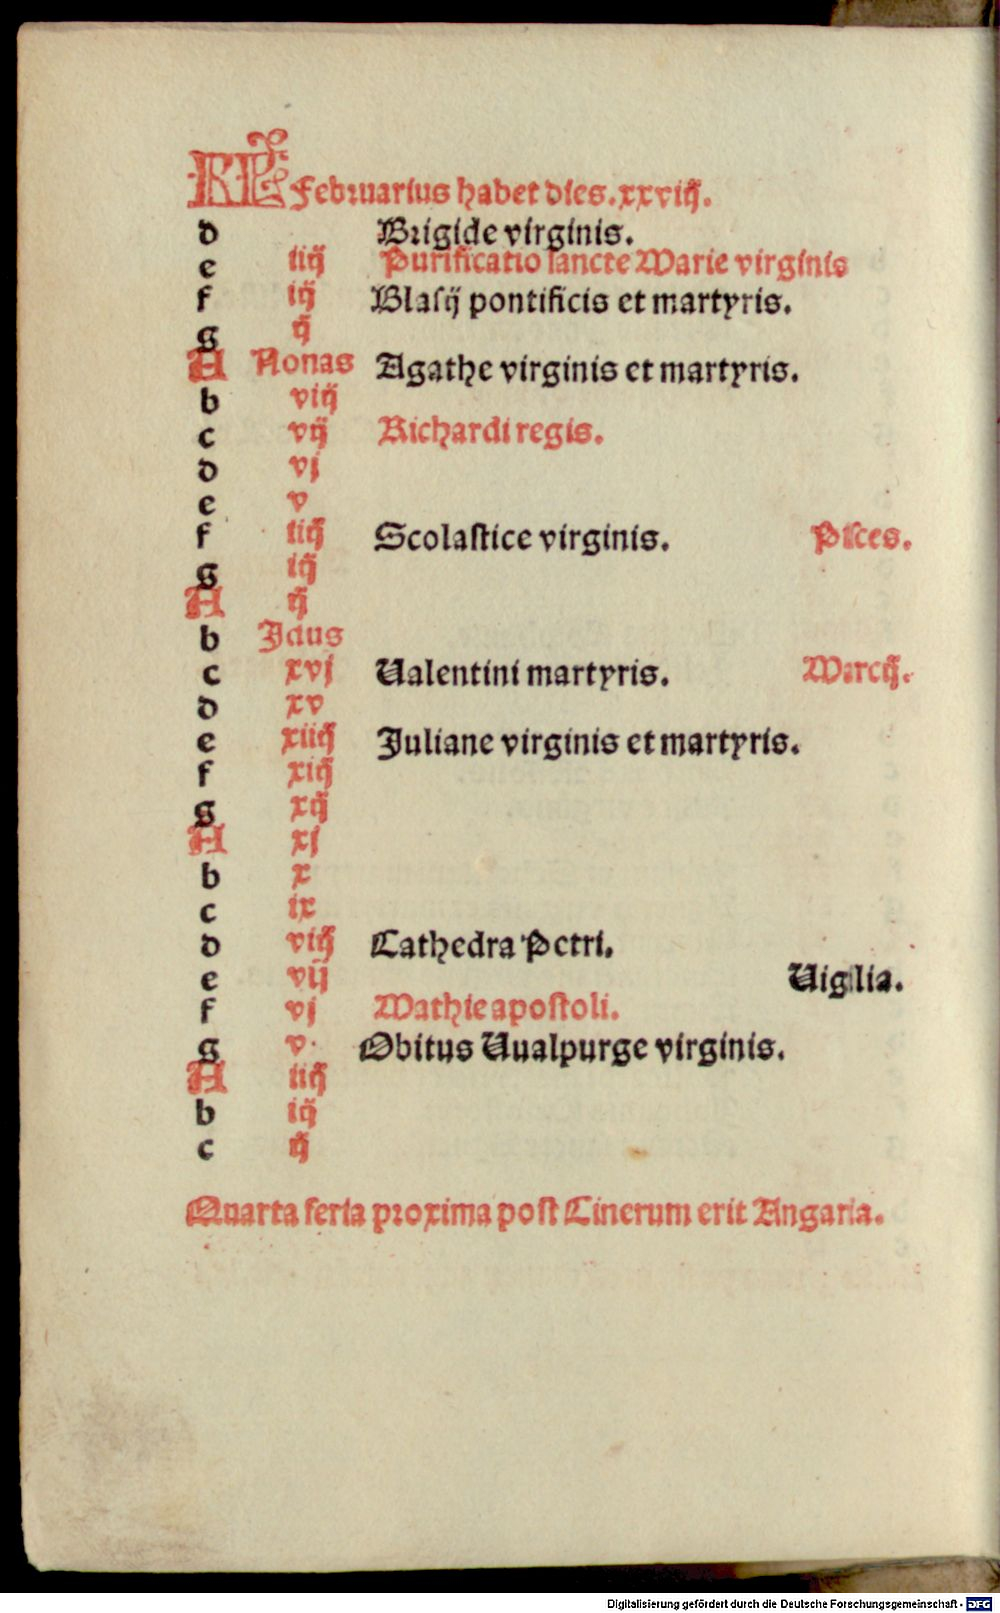 KL Februarius habet dies.xxviij.
d Brigide virginis.
e iiij Purificatio sancte Marie virginis
f iij Blasij pontificis et martyris.
g ij
A Nonas Agathe virginis et martyris.
b viij
c vij Richardi regis.
d vj
e v
f iiij Scolastice virginis. Pisces.
g iij
A ij
b Idus
c xvj Ualentini martyris. Marcij.
d xv
e xiiij Juliane virginis et martyris.
f xiij
g xij
A xj
b x
c ix
d viij Cathedra Petri.
e vij Uigilia.
f vj Mathie apostoli.
g v. Obitus Uualpurge virginis.
A iiij
b iij
c ij
Quarta feria proxima post Cinerum erit Angaria.
Digitalisierung gefördert durch die Deutsche Forschungsgemeinschaft - DFG